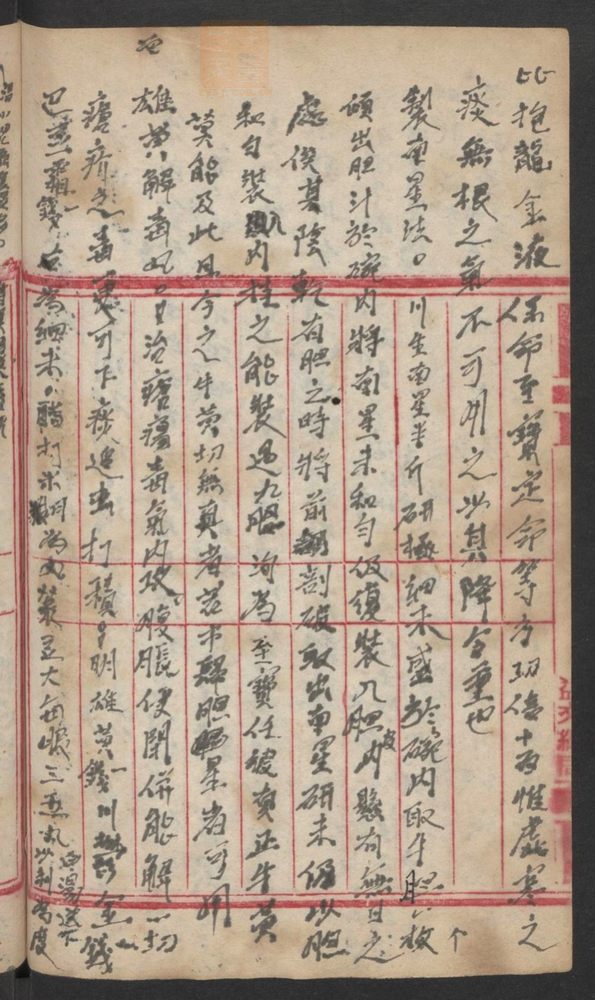 比抱龍金液保命至寶定命等方功倍十百惟虛寒之
痰無根之氣不可用之以其降令重也
製南星法。川生南星半斤研極細末盛於碗內取牛胆八枚
傾出胆汁於碗內將南星末和勻仍復裝入胆皮內懸有無日之
處俟其陰乾有胆之時將前剖破取出南星研末仍以胆
和勻裝入內挂之能裝過九胆洵為至寶任彼真正牛黃
莫能及此且今之牛黃切無真者若市胆星者可用
雄黃解毒丸。治瘡瘍毒氣內攻腹脹便閉併能解一切
瘡疥之毒更可下痰追虫打積。明雄黃一錢川鬱金一錢
巴豆霜一錢右為細末。醋打米糊為丸菉豆大每服三五丸以利為度